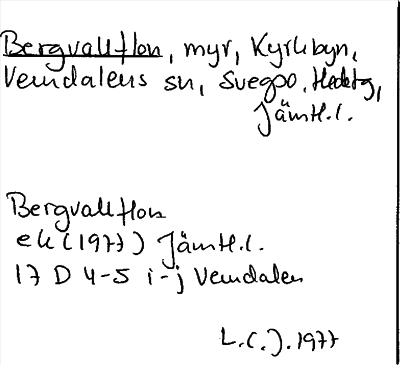 Bergvallflon, myr, Kyrkbyn,
Vemdalens sn, Svegso,
Jämtl.l.
Bergvallflon
ek (1977) Jämtl.l.
17 D 4-5 i-j Vemdalen
L.C.J. 1977